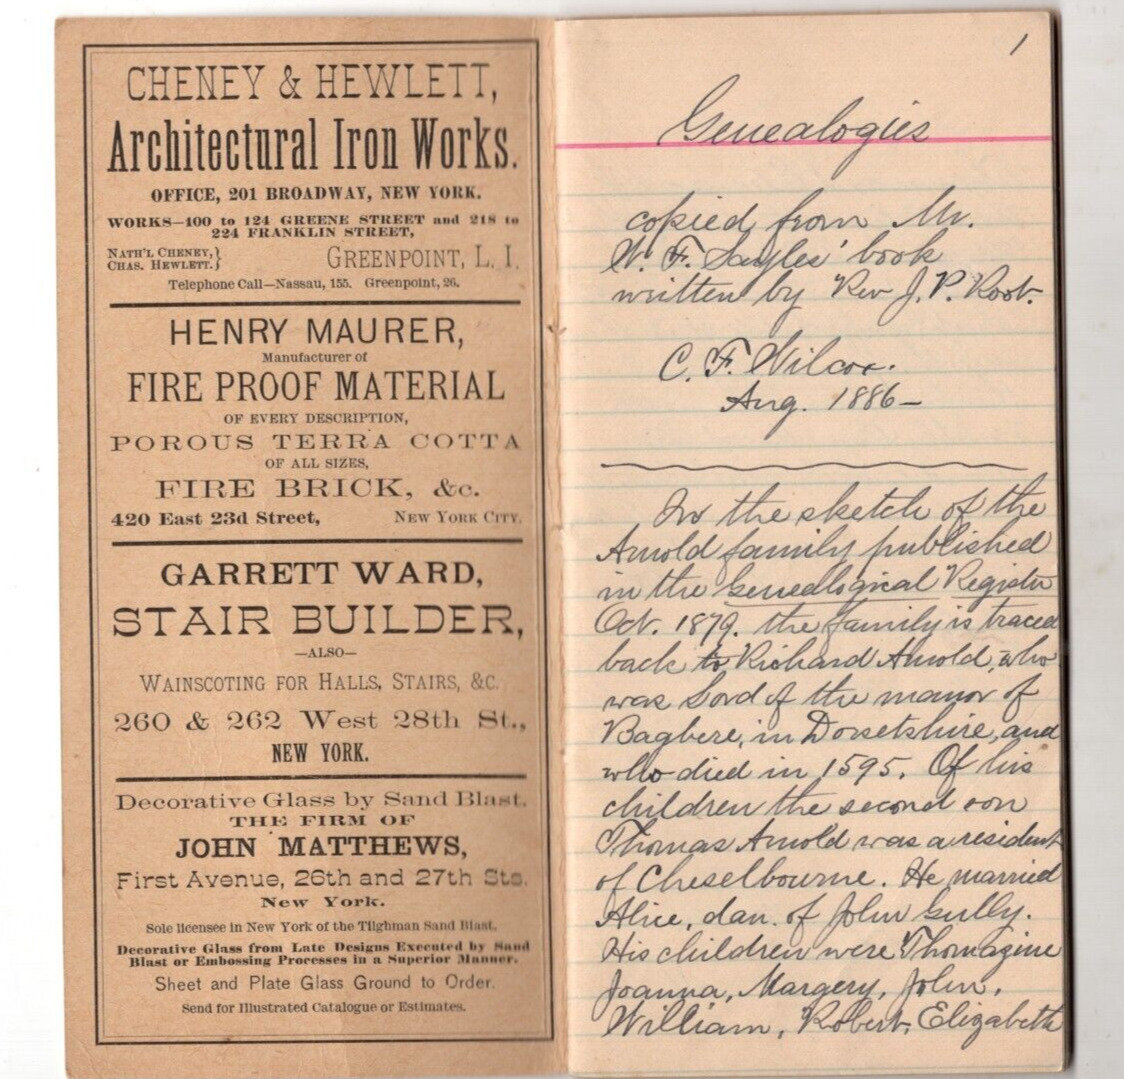 CHENEY & HEWLETT,
Architectural Iron Works.
OFFICE, 201 BROADWAY, NEW YORK.
WORKS—100 to 124 GREENE STREET and 218 to
224 FRANKLIN STREET,
NATH'L CHENEY, }
CHAS. HEWLETT. }
GREENPOINT, L. I.
Telephone Call—Nassau, 155. Greenpoint, 26.
HENRY MAURER,
Manufacturer of
FIRE PROOF MATERIAL
OF EVERY DESCRIPTION,
POROUS TERRA COTTA
OF ALL SIZES,
FIRE BRICK, &c.
420 East 23d Street, NEW YORK CITY.
GARRETT WARD,
STAIR BUILDER,
—ALSO—
WAINSCOTING FOR HALLS, STAIRS, &C.
260 & 262 West 28th St.,
NEW YORK.
Decorative Glass by Sand Blast.
THE FIRM OF
JOHN MATTHEWS,
First Avenue, 26th and 27th Sts.
New York.
Sole licensee in New York of the Tilghman Sand Blast.
Decorative Glass from Late Designs Executed by Sand
Blast or Embossing Processes in a Superior Manner.
Sheet and Plate Glass Ground to Order.
Send for Illustrated Catalogue or Estimates.
1
Genealogies
copied from Mr.
W. F. Sayles' book
written by Rev J. P. Root.
C. F. Wilcox.
Aug. 1886—
In the sketch of the
Arnold family published
in the Genealogical Register
Oct. 1879. the family is traced
back to Richard Arnold, who
was Lord of the manor of
Bagbere, in Dorsetshire, and
who died in 1595. Of his
children the second son
Thomas Arnold was a resident
of Cheselbourne. He married
Alice, dau. of John Gully.
His children were Thomazine
Joanna, Margery, John,
William, Robert, Elizabeth